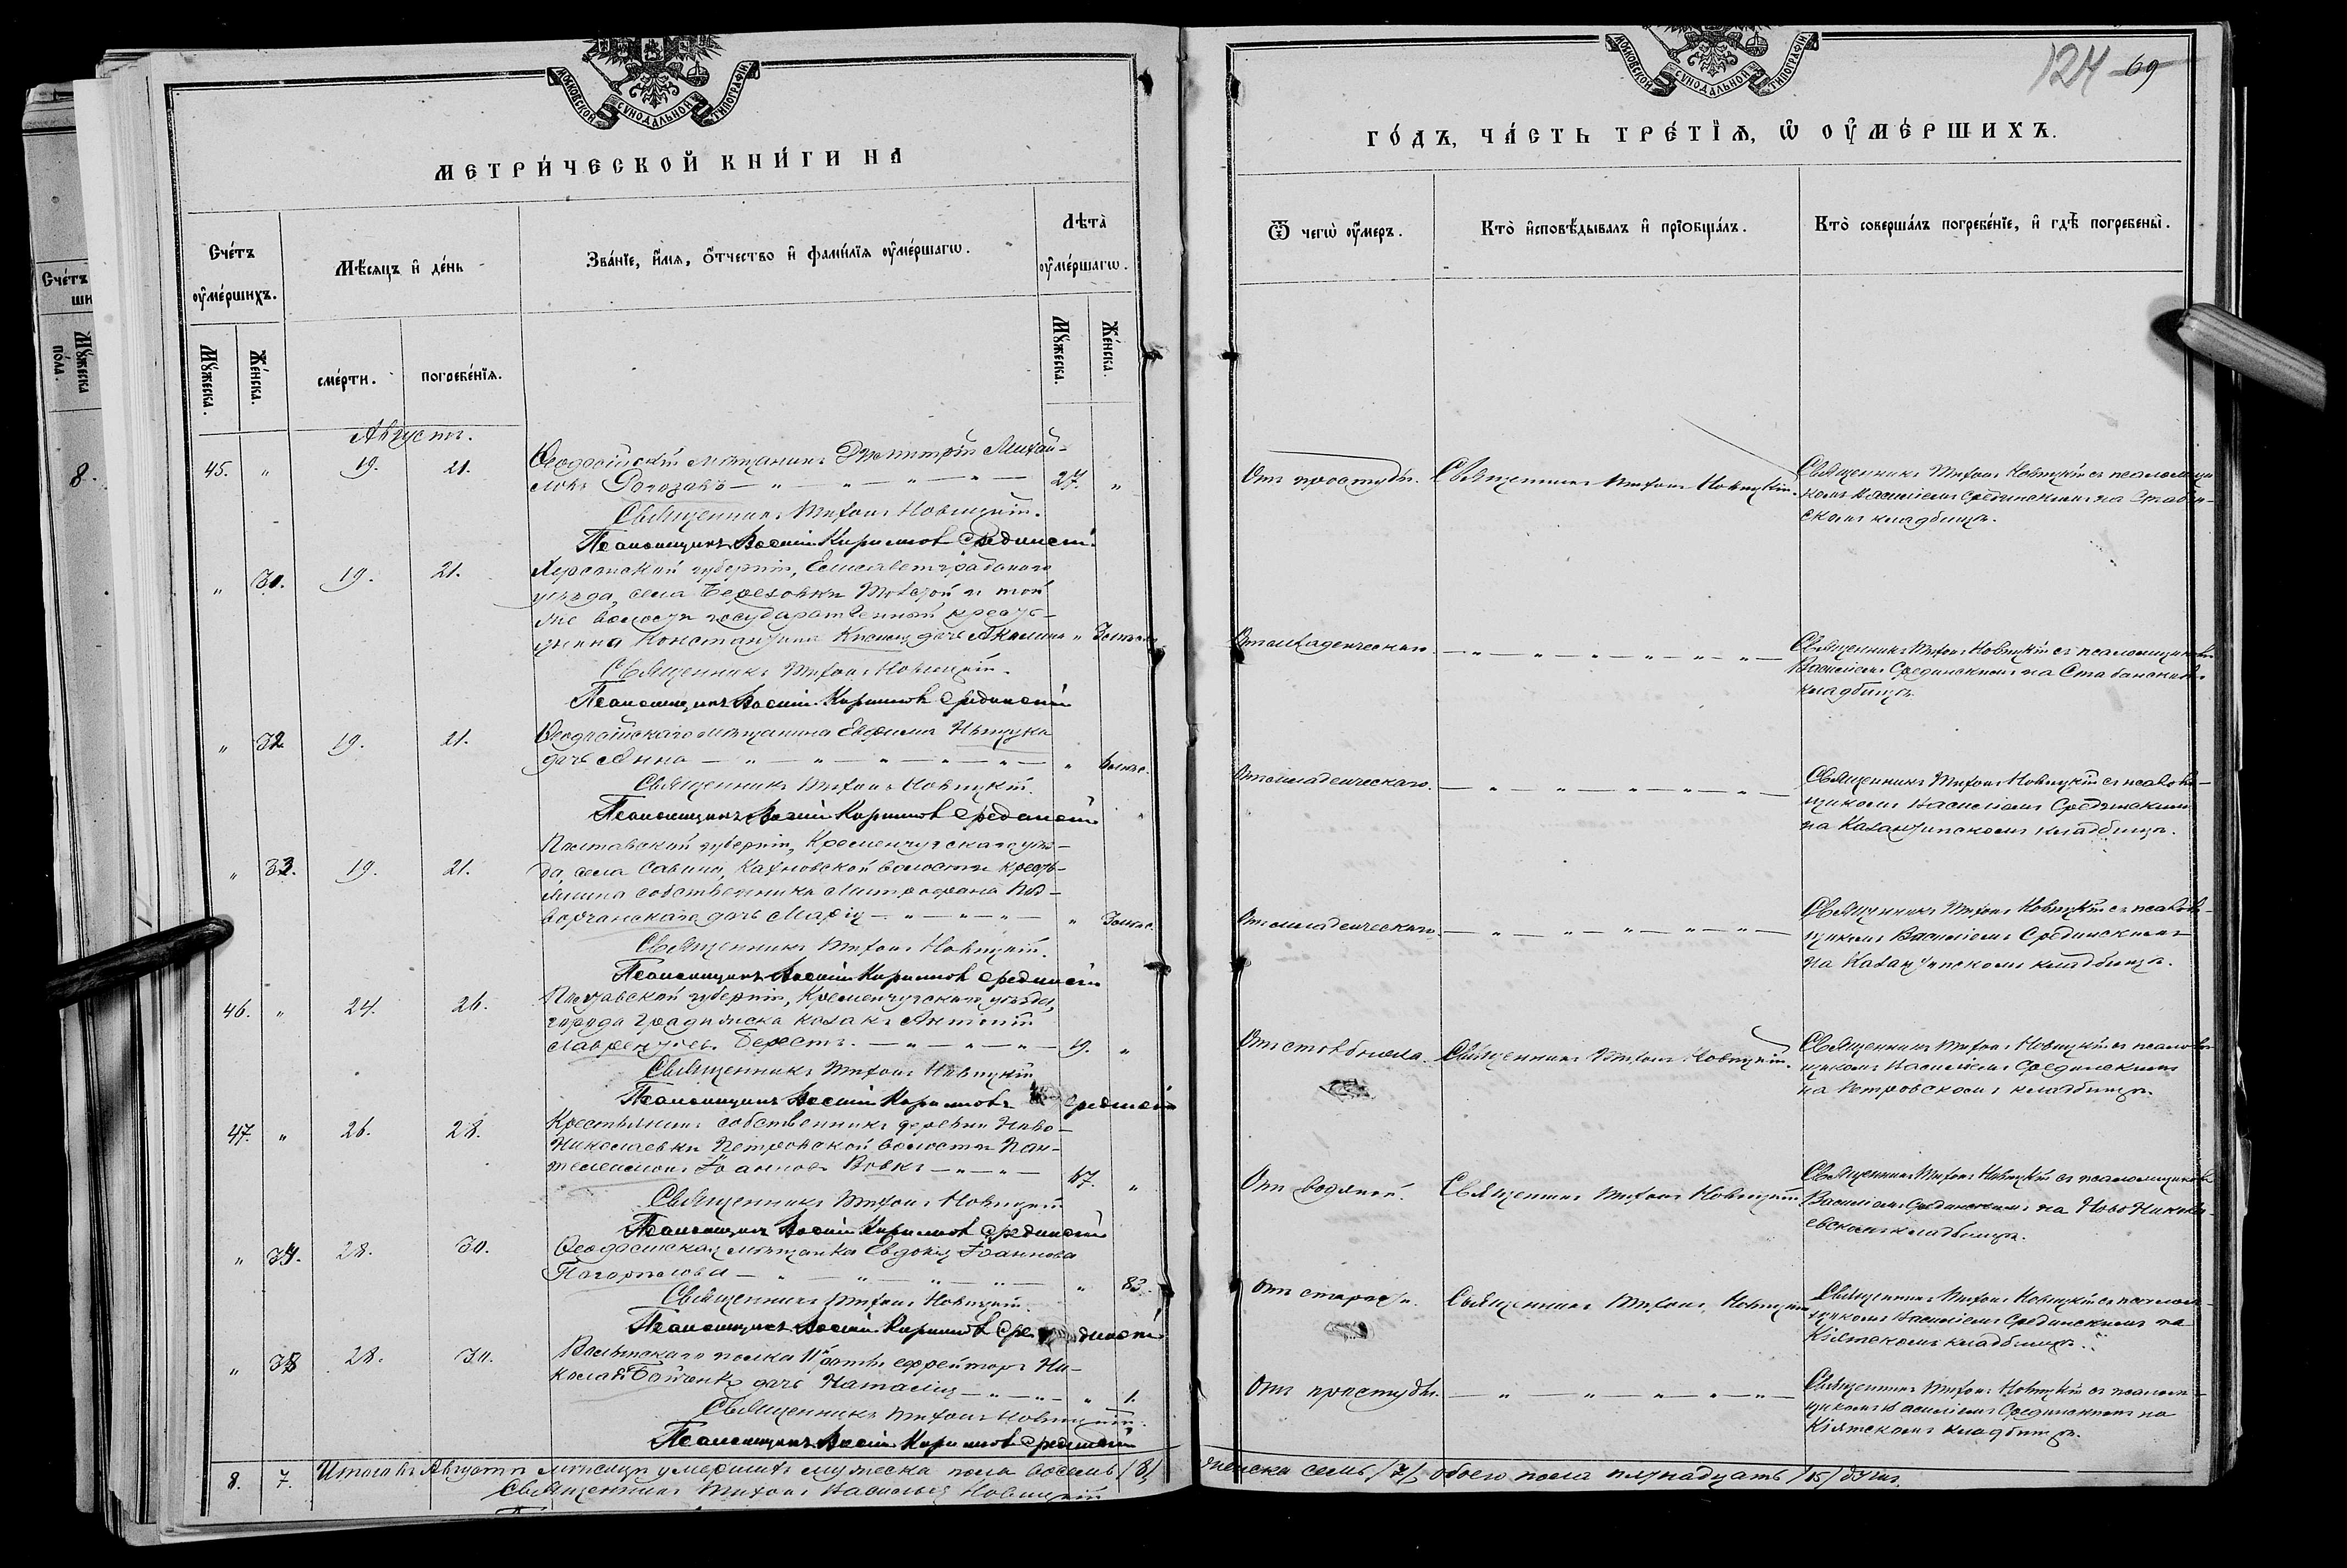 МОСКОВСКОЙ СѴНОДАЛЬНОЙ ТИПОГРАФІИ
МЕТРИ́ЧЕСКОЙ КНИ́ГИ НА
Сче́тъ ᲂу҆ме́ршихъ.
Мѣ́сяцъ и҆ де́нь
Зва́нїе, и҆́мѧ, ѻ҆́тчество и҆ фами́лїѧ ᲂу҆ме́ршагѡ.
Лѣта̀ ᲂу҆ме́ршагѡ.
Мꙋ́жеска.
Же́нска.
сме́рти.
погребе́нїѧ.
Мꙋ́жеска.
Же́нска.
Августъ.
45. " 19. 21. Ѳеодосійскій мѣщанинъ Димитрій Михай-
ловъ Рогозавъ — " — " — " — " — 27. "
Священникъ Тихонъ Новицкій.
Псаломщикъ Василій Кириловъ Срединскій
" 31. 19. 21. Херсонской губерніи, Елисаветградскаго
уѣзда, села Березовки той
же волости государственной кресть-
янина Константина дочь Акилина "
Священникъ Тихонъ Новицкій.
Псаломщикъ Василій Кириловъ Срединскій
" 32 19. 21. Ѳеодосійскаго мѣщанина Евфимія
дочь Анна — " — " — " — " — " — "
Священникъ Тихонъ Новицкій.
Псаломщикъ Василій Кириловъ Срединскій
" 33. 19. 21. Полтавской губерніи, Кременчугскаго уѣз-
да, села Савино, волости кресть-
янина собственника Митрофана
дочь Марія — " — " — " — "
Священникъ Тихонъ Новицкій.
Псаломщикъ Василій Кириловъ Срединскій
46. " 24. 26. Полтавской губерніи, Кременчугскаго уѣзда,
города Градижска казакъ Антоній
Лаврентьевъ Берестъ. — " — " — " — 19. "
Священникъ Тихонъ Новицкій
Псаломщикъ Василій Кириловъ Срединскій
47. " 26. 28. Крестьянинъ собственникъ деревни Ново-
Николаевки Петровской волости Пан-
телеимонъ Іоанновъ Вовкъ — " — " — 47. "
Священникъ Тихонъ Новицкій
Псаломщикъ Василій Кириловъ Срединскій
" 34. 28. 30. Ѳеодосійская мѣщанка Евдокія Іоаннова
Погорелова — " — " — " — " — " 83.
Священникъ Тихонъ Новицкій.
Псаломщикъ Василій Кириловъ Срединскій
" 35 28. 30. полка ефрейтора Ни-
колая дочь Наталія — " — " — " 1.
Священникъ Тихонъ Новицкій.
Псаломщикъ Василій Кириловъ Срединскій
8. 7. Итого въ Августѣ мѣсяцѣ умершихъ мужеска пола восемь /8/
Священникъ Тихонъ Васильевъ Новицкій
МОСКОВСКОЙ СѴНОДАЛЬНОЙ ТИПОГРАФІИ
124 69
ГО́ДЪ, ЧА́СТЬ ТРЕ́ТЇѦ, Ѡ҆ ОУ҆МЕ́РШИХЪ.
Ѿ чегѡ̀ ᲂу҆́меръ.
Кто̀ и҆сповѣ́дывалъ и҆ прїѻбща́лъ.
Кто̀ соверша́лъ погребе́нїе, и҆ гдѣ̀ погребены̀.
Отъ простуды. Священникъ Тихонъ Новицкій. Священникъ Тихонъ Новицкій съ псаломщи-
комъ Василіемъ Срединскимъ на
скомъ кладбищѣ.
Отъ младенческаго. — " — " — " — " — " — " — Священникъ Тихонъ Новицкій съ псаломщикомъ
Василіемъ Срединскимъ на
кладбищѣ.
Отъ младенческаго. — " — " — " — " — " — Священникъ Тихонъ Новицкій съ псалом-
щикомъ Василіемъ Срединскимъ
на Казантипскомъ кладбищѣ.
Отъ младенческаго. — " — " — " — " — " — Священникъ Тихонъ Новицкій съ псалом-
щикомъ Василіемъ Срединскимъ
на Казантипскомъ кладбищѣ.
Отъ столбняка. Священникъ Тихонъ Новицкій. Священникъ Тихонъ Новицкій съ псалом-
щикомъ Василіемъ Срединскимъ
на Петровскомъ кладбищѣ.
Отъ водяной. Священникъ Тихонъ Новицкій Священникъ Тихонъ Новицкій съ псаломщикомъ
Василіемъ Срединскимъ на Ново Никола-
евскомъ кладбищѣ.
Отъ старости. Священникъ Тихонъ Новицкій Священникъ Тихонъ Новицкій съ псалом-
щикомъ Василіемъ Срединскимъ на
Кіятскомъ кладбищѣ.
Отъ простуды. — " — " — " — " — " — Священникъ Тихонъ Новицкій съ псалом-
щикомъ Василіемъ Срединскимъ на
Кіятскомъ кладбищѣ.
женска семь, /7/ обоего пола пятнадцать /15/ душъ.
Сче́тъ
Мꙋ́жеска
по́ла.
8.